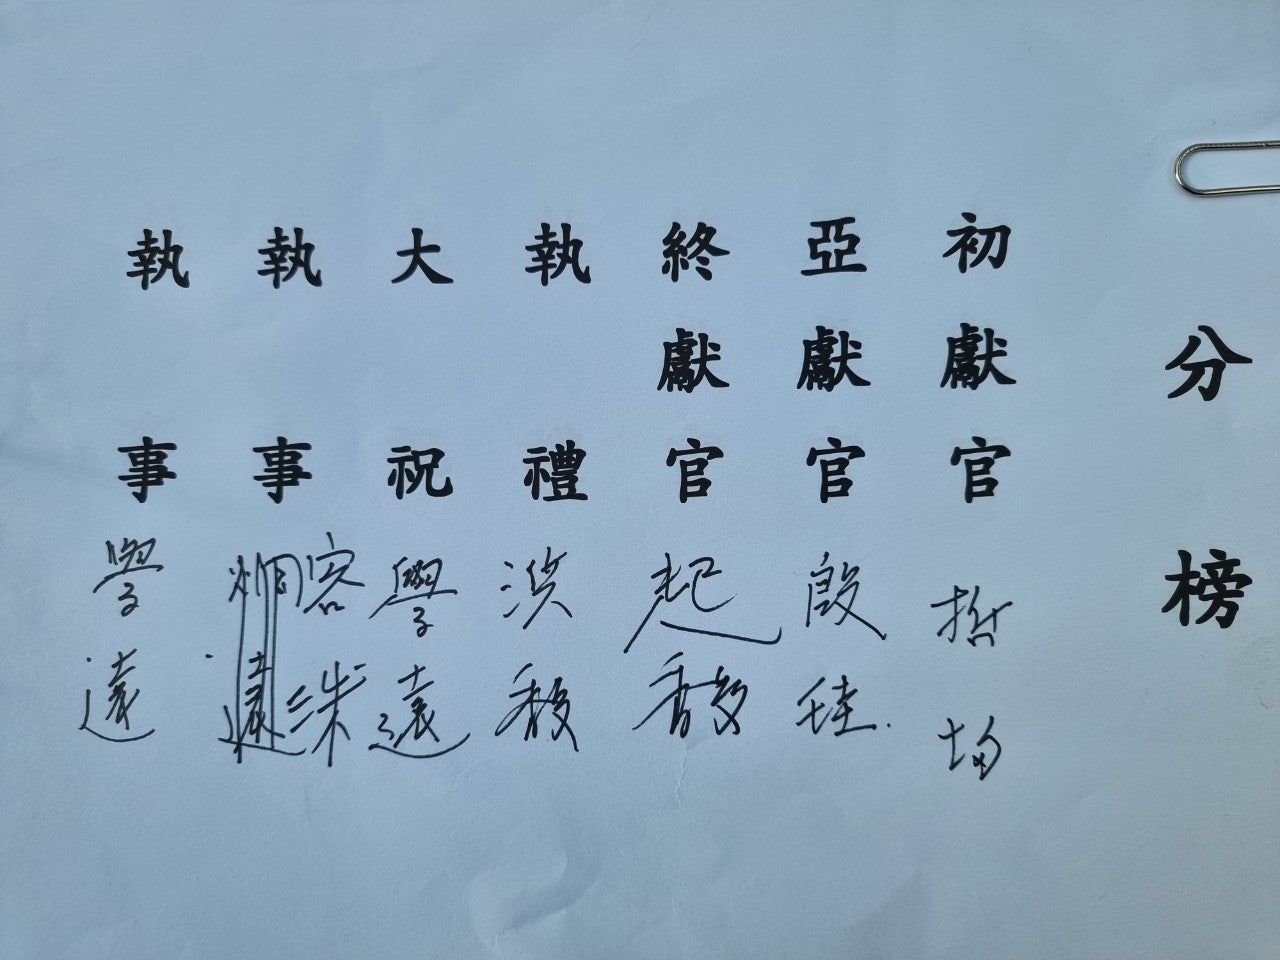 分榜
初獻官 哲均
亞獻官 殷珪
終獻官 起馥
執禮 馥
大祝 學遠
執事 容洙
執事 學遠